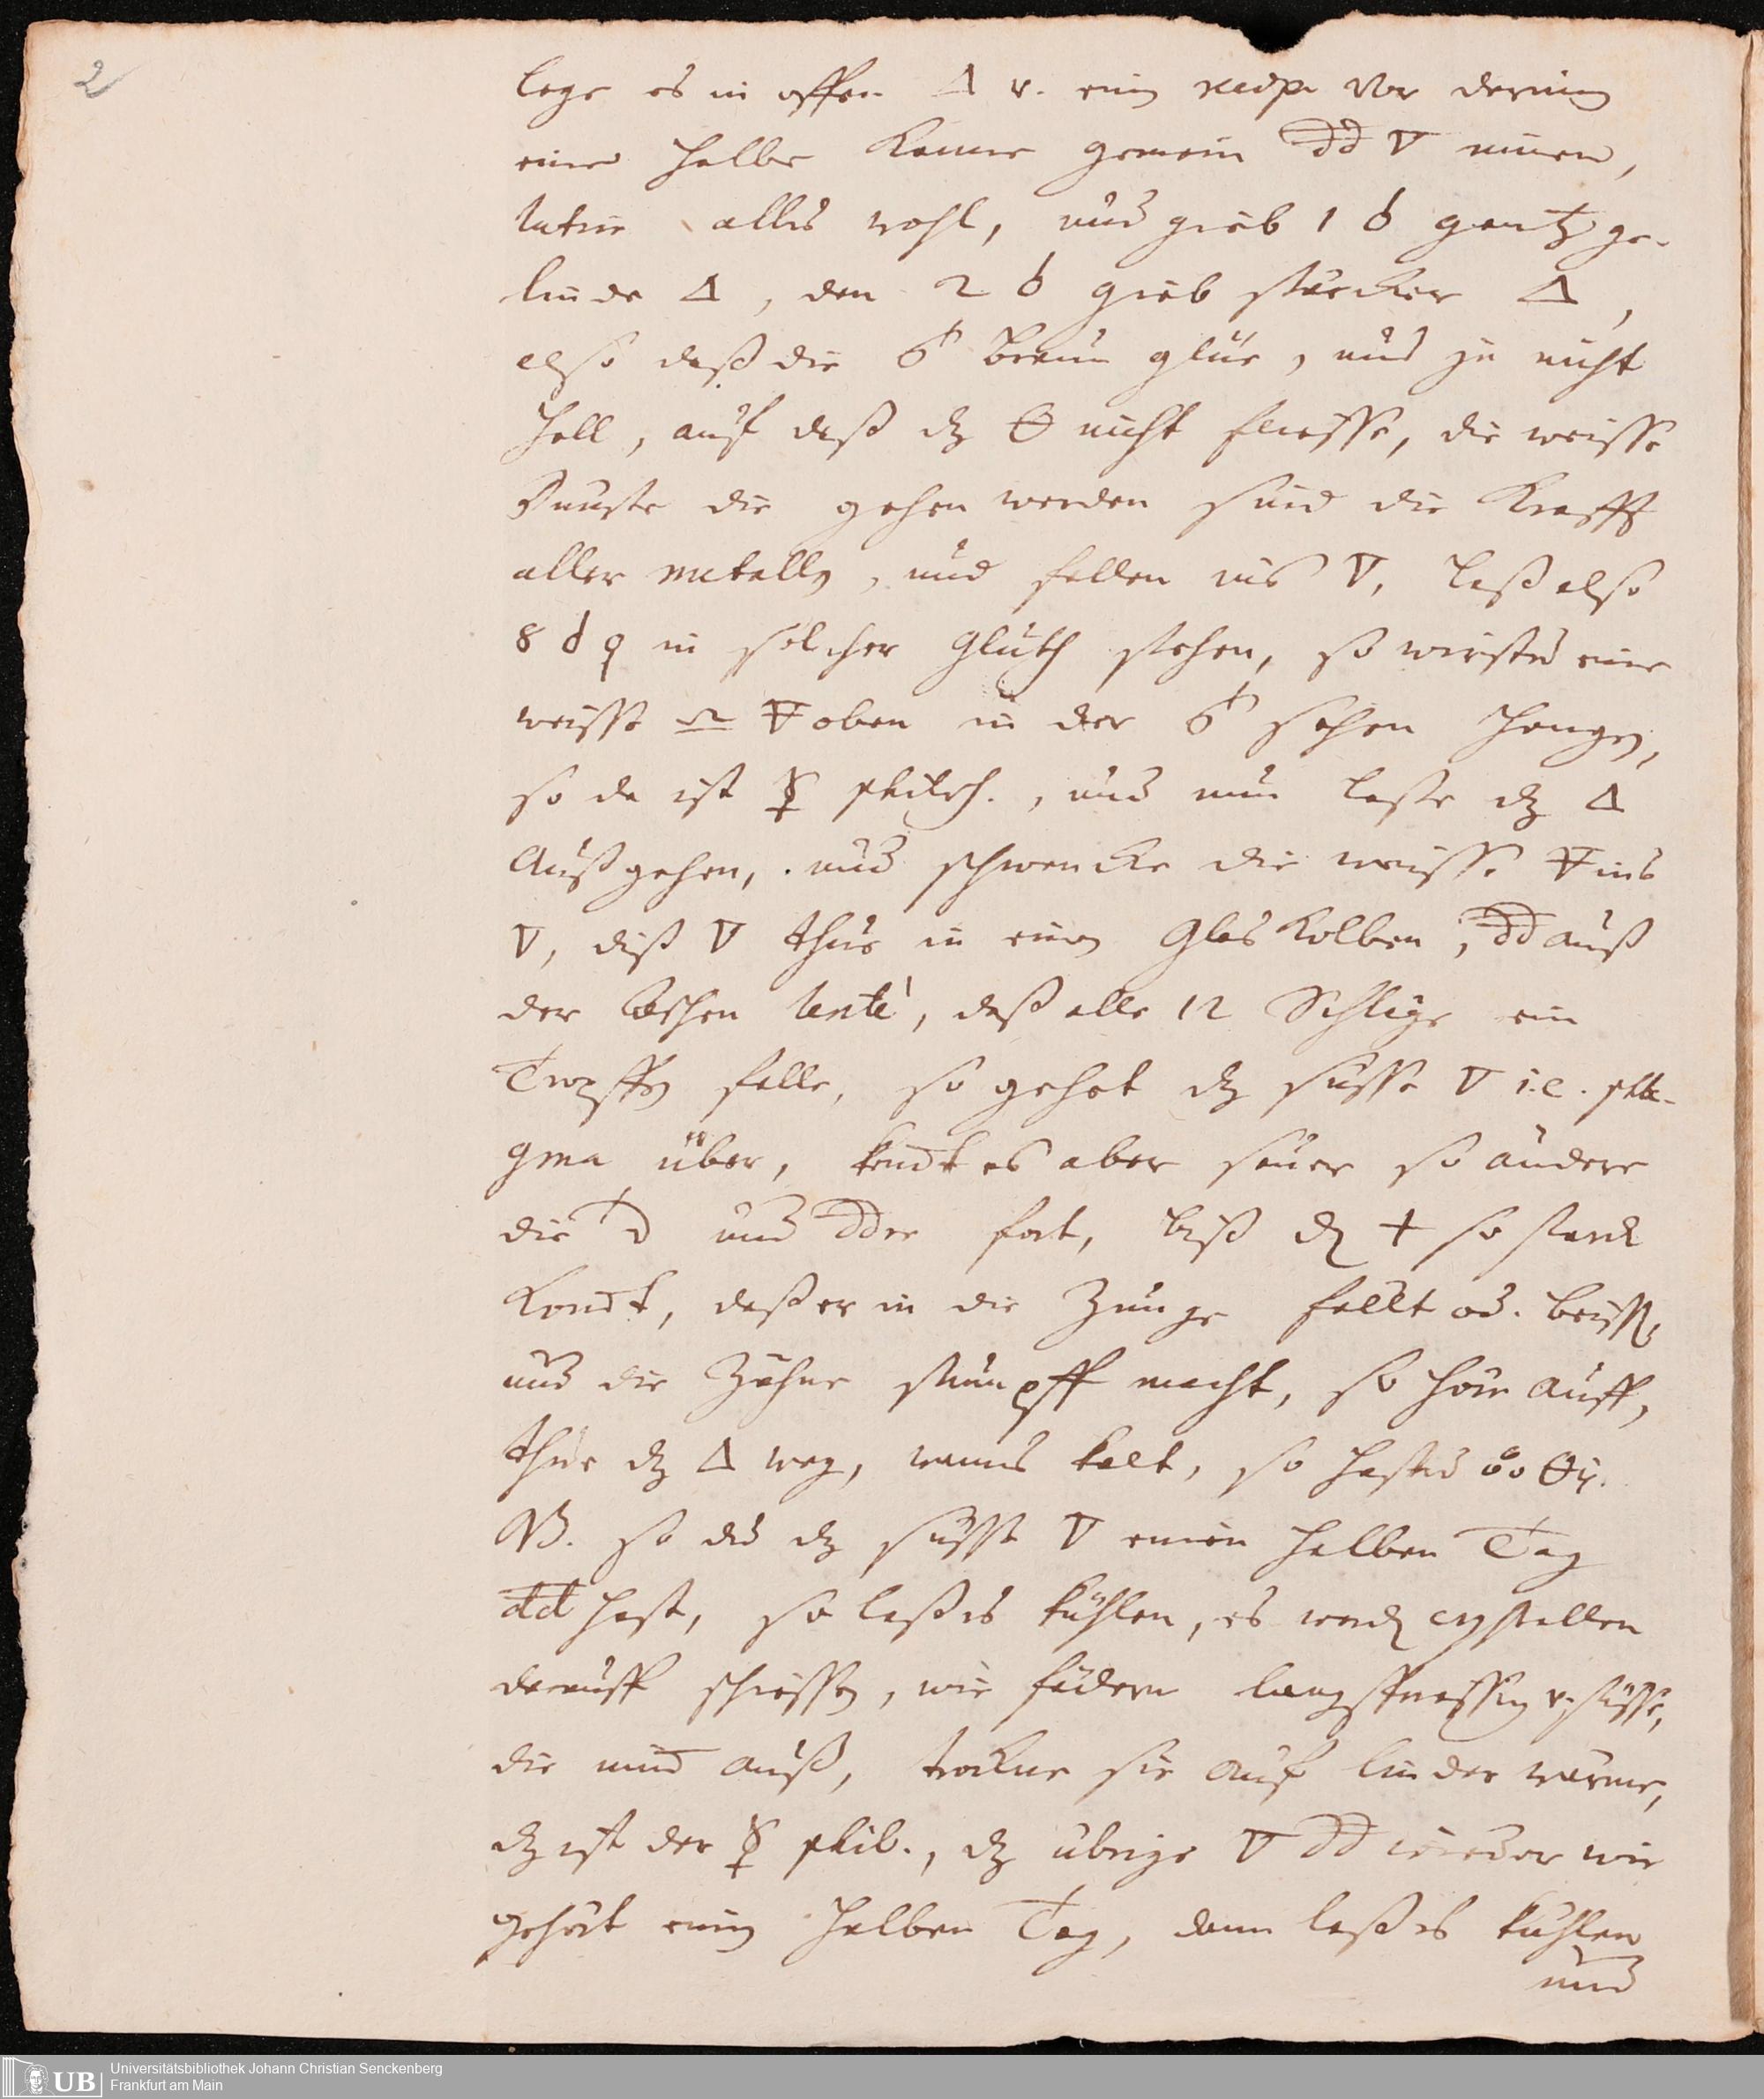 2
lege es in offen 🜂 v. einẽ recip. vor darinn
eine halbe Kanne gemein dd 🜄 innen,
lutire alles wohl, und gieb 1 d gantz ge-
linde 🜂, den 2 d gieb stärcker 🜂,
also daß die braun glüe, und ja nicht
hell, auf daß dz 🜔 nicht fliesse, die weisse
Dünste die gehen werden sind die Krafft
aller metallẽ, und fallen ins 🜄, laß also
8 d in solcher Gluth stehen, so wirstu eine
weisse 🜃 oben in der sehen hangẽ,
so da ist ☿ philos., und nun lasse dz 🜂
Außgehen, und schwencke die weisse 🜃 ins
🜄, diß 🜄 thue in einẽ Glas Kolben, dd auß
der aschen lentè, daß alle 12 Schläge ein
Tropffẽ falle, so gehet dz süsse 🜄 i.e. phle-
gma über, kõndt es aber sauer so ändere
die und ddre fort, biß dz + so starck
Kõndt, daß er in die Zunge fället od. beisset,
und die Zähne stumpff macht, so höre auff,
thue dz 🜂 weg, wanns kalt, so hastu
NB. so du dz süsse 🜄 einen halben Tag
dd hast, so laß es kühlen, es werdẽ crystallen
darauff schiessẽ, wie fädern v. süsse,
die nim̃ auß, trockne sie auf linder wärme,
dz ist der ☿ phil., dz übrige 🜄 dd wieder wie
gehört einẽ halben Tag, dann laß es kühlen
und
UB Universitätsbibliothek Johann Christian Senckenberg
Frankfurt am Main